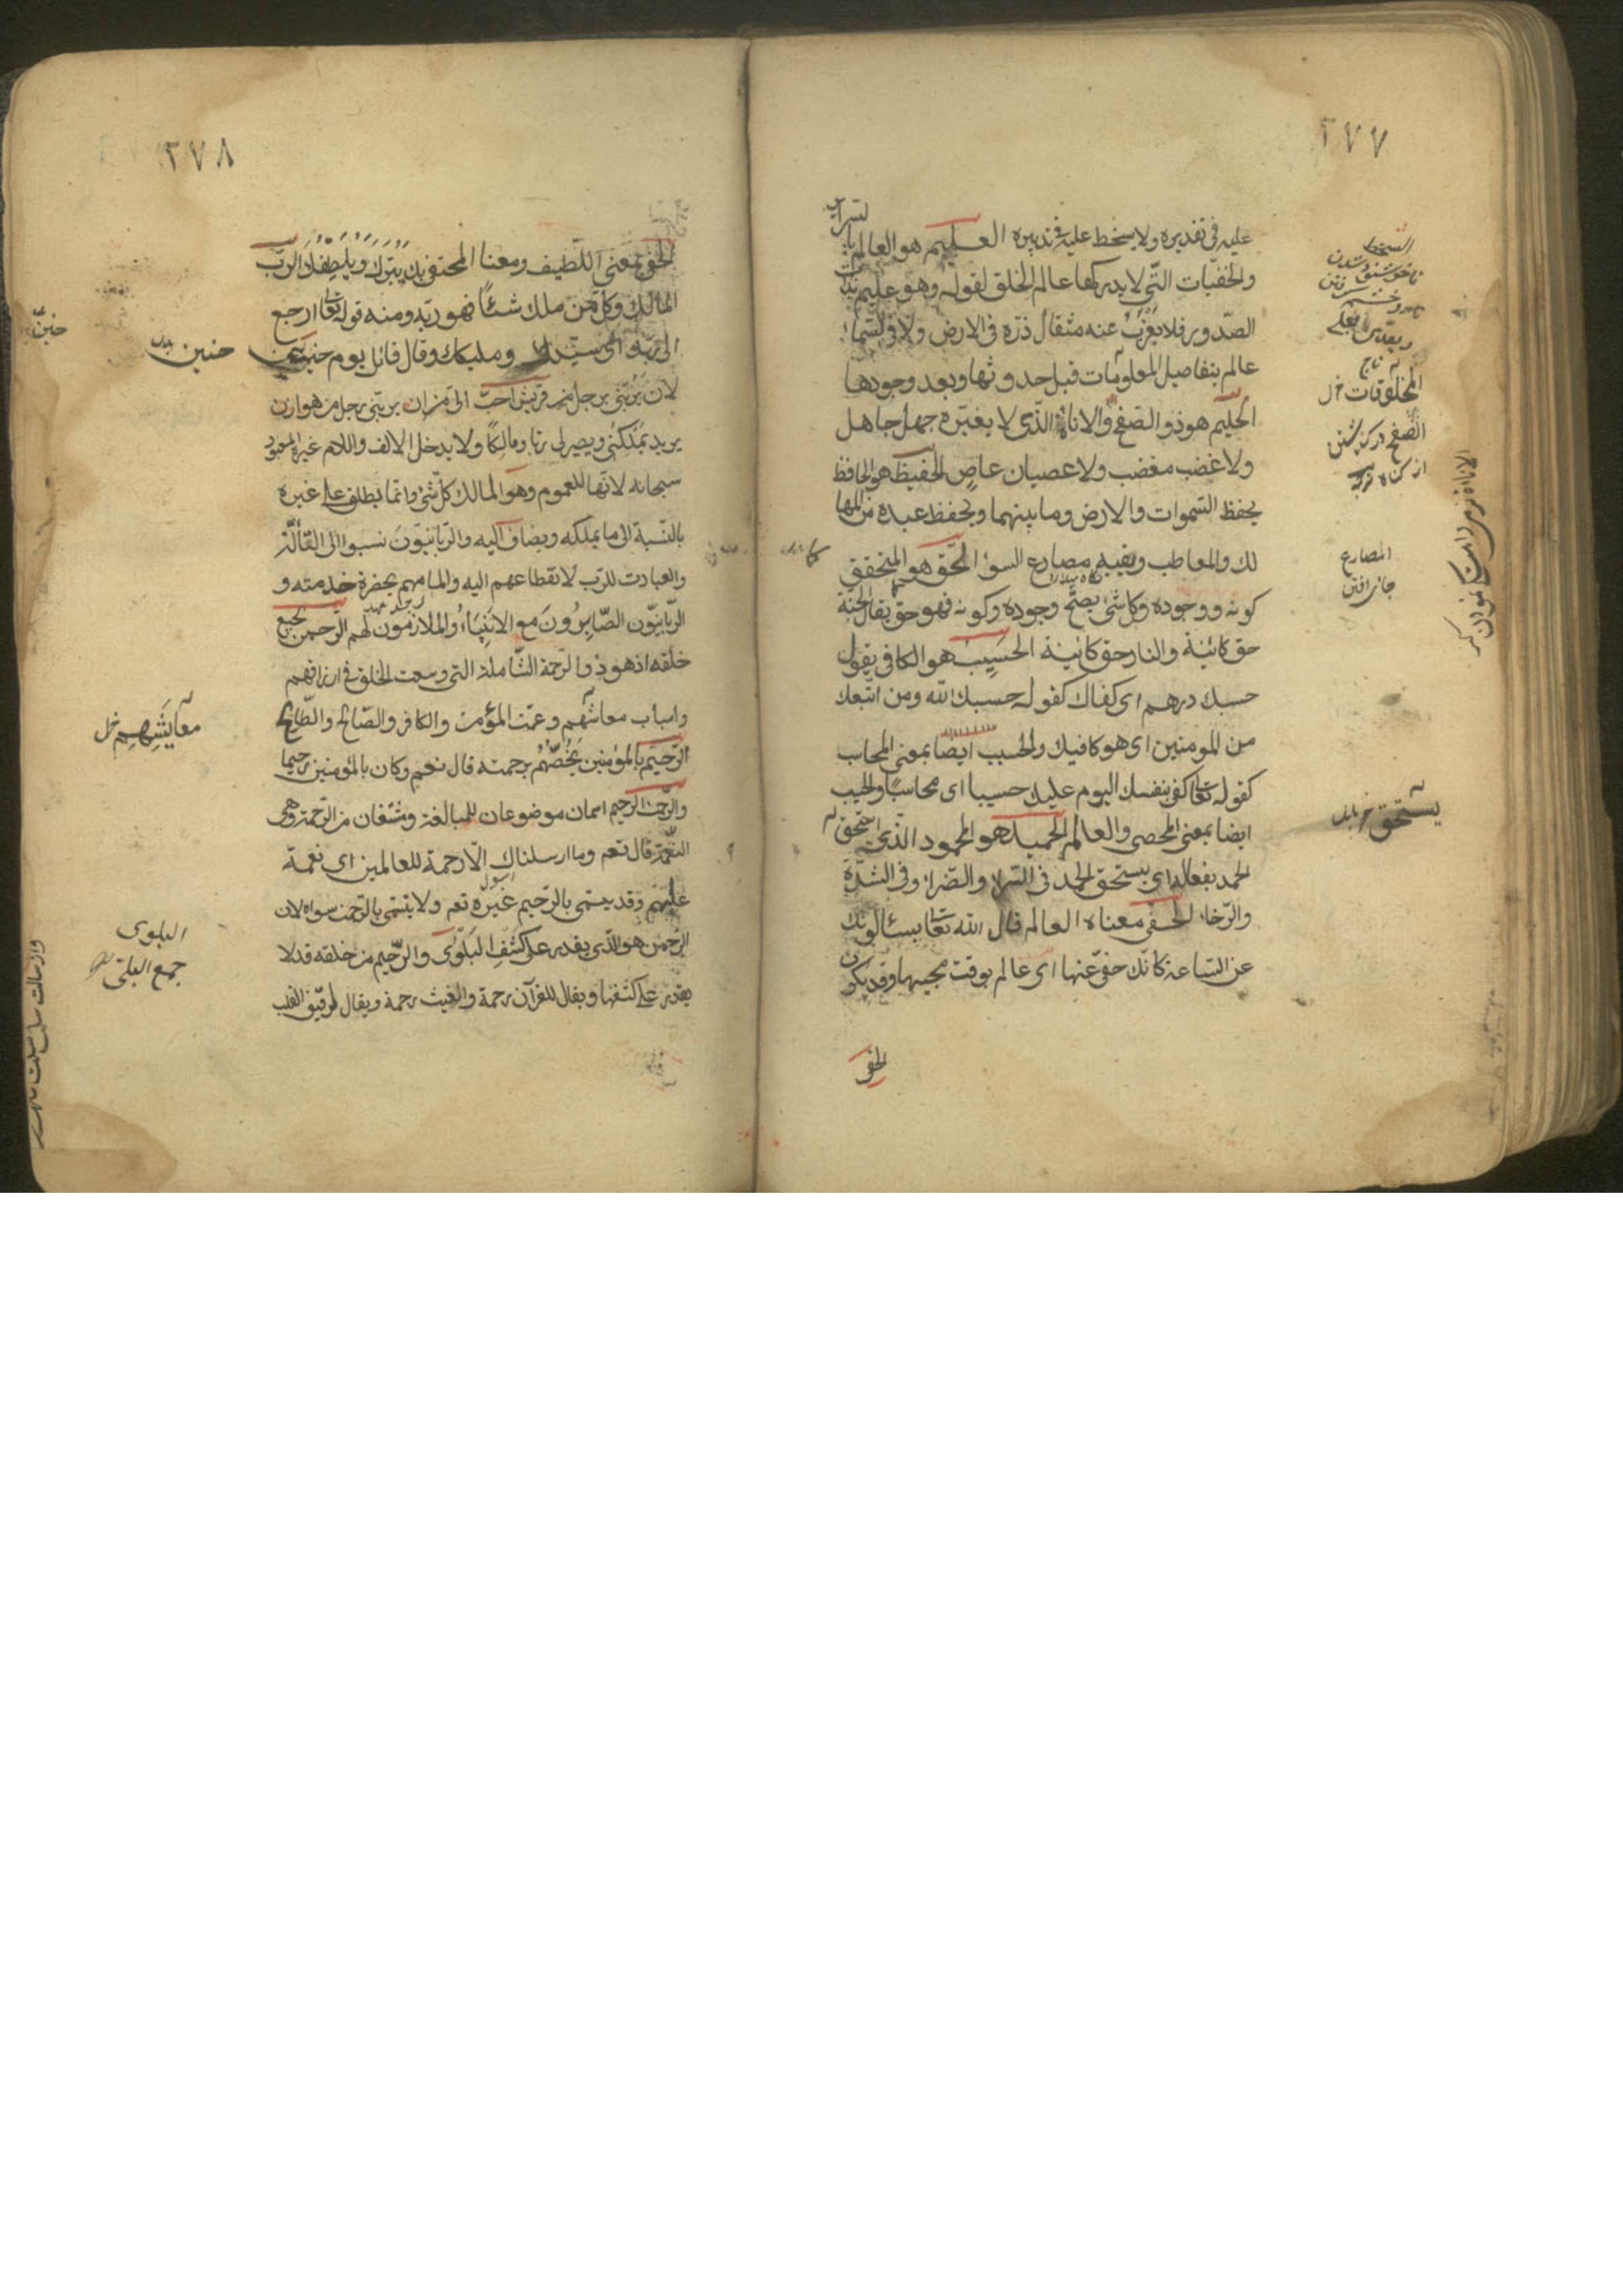 ٢٧٧
عليه فى تقديره ولا يسخط عليه فى تدبيره العليم هو العالم بالسراير
والخفيات التى لا يدركها عالم الخلق لقوله وهو عليم بذات
الصدور فلا يعزب عنه مثقال ذرة فى الارض ولا فى السماء
عالم بتفاصيل المعلومات قبل حدوثها وبعد وجودها
الحليم هو ذو الصفح والاناة الذى لا يغيره جهل جاهل
ولا غضب مغضب ولا عصيان عاص الحفيظ هو الحافظ
يحفظ السموات والارض وما بينهما ويحفظ عبده من المها
لك والمعاطب ويقيه مصارع السوء الحق هو المتحقق
كونه ووجوده وكل شئ يصح وجوده وكونه فهو حق يقال الجنة
حق كائنة والنار حق كائنة الحسيب هو الكافى يقول
حسبك درهم اى كفاك كقوله حسبك الله ومن اتبعك
من المومنين اى هو كافيك والحسيب ايضا بمعنى المحاسب
كقوله تعا كفى بنفسك اليوم عليك حسيبا اى محاسبا والحسيب
ايضا بمعنى المحصى والعالم الحميد هو المحمود الذى استحق
الحمد بفعاله اى يستحق الحمد فى السراء والضراء وفى الشدة
والرخاء الحفى معناه العالم قال الله تعا يسئالونك
عن الساعة كانك حفى عنها اى عالم بوقت مجيها وقد يكون
الحفى
السخط
المخلوقات خ ل
الصفح در كذشتن
از كناه
المصارع
يستحق
٢٧٨
الحفى بمعنى اللطيف ومعنا المحتفى بك ببرك ويلطفك الرب
المالك وكل من ملك شئا فهو ربه ومنه قوله تعا ارجع
الى ربك اى سيدك ومليكك وقال قائل يوم حنين
لان يربنى رجل من قريش احب الى من ان يربنى رجل من هوازن
يريد يملكنى ويصير لى ربا ومالكا ولا يدخل الالف واللام غير المعبود
سبحانه لانها للعموم وهو المالك كل شئ وانما يطلق على غيره
بالنسبة الى ما يملكه ويضاف اليه والربانيون نسبوا الى التأله
والعبادت للرب لانقطاعهم اليه والمامهم بحضرة خدمته و
الربانيون الصابرون مع الانبياء والملازمون لهم الرحمن بجميع
خلقه اذ هو ذو الرحمة الشاملة التى وسعت الخلق فى ارزاقهم
واسباب معاشهم وعمت المؤمن والكافر والصالح والطالح
الرحيم بالمؤمنين يخصهم برحمته قال تعم وكان بالمؤمنين رحيما
والرحمن الرحيم اسمان موضوعان للمبالغة ومشتقان من الرحمة وهى
النعمة قال تعم وما ارسلناك الا رحمة للعالمين اى نعمة
عليهم وقد يسمى بالرحيم غيره تعم ولا يسمى بالرحمن سواه لان
الرحمن هو الذى يقدر على كشف البلوى والرحيم من خلقه قد لا
يقدر على كشفها ويقال للقرآن رحمة والغيث رحمة ويقال لرقيق القلب
حنين
معايشهم خ ل
البلوى
جمع البلية